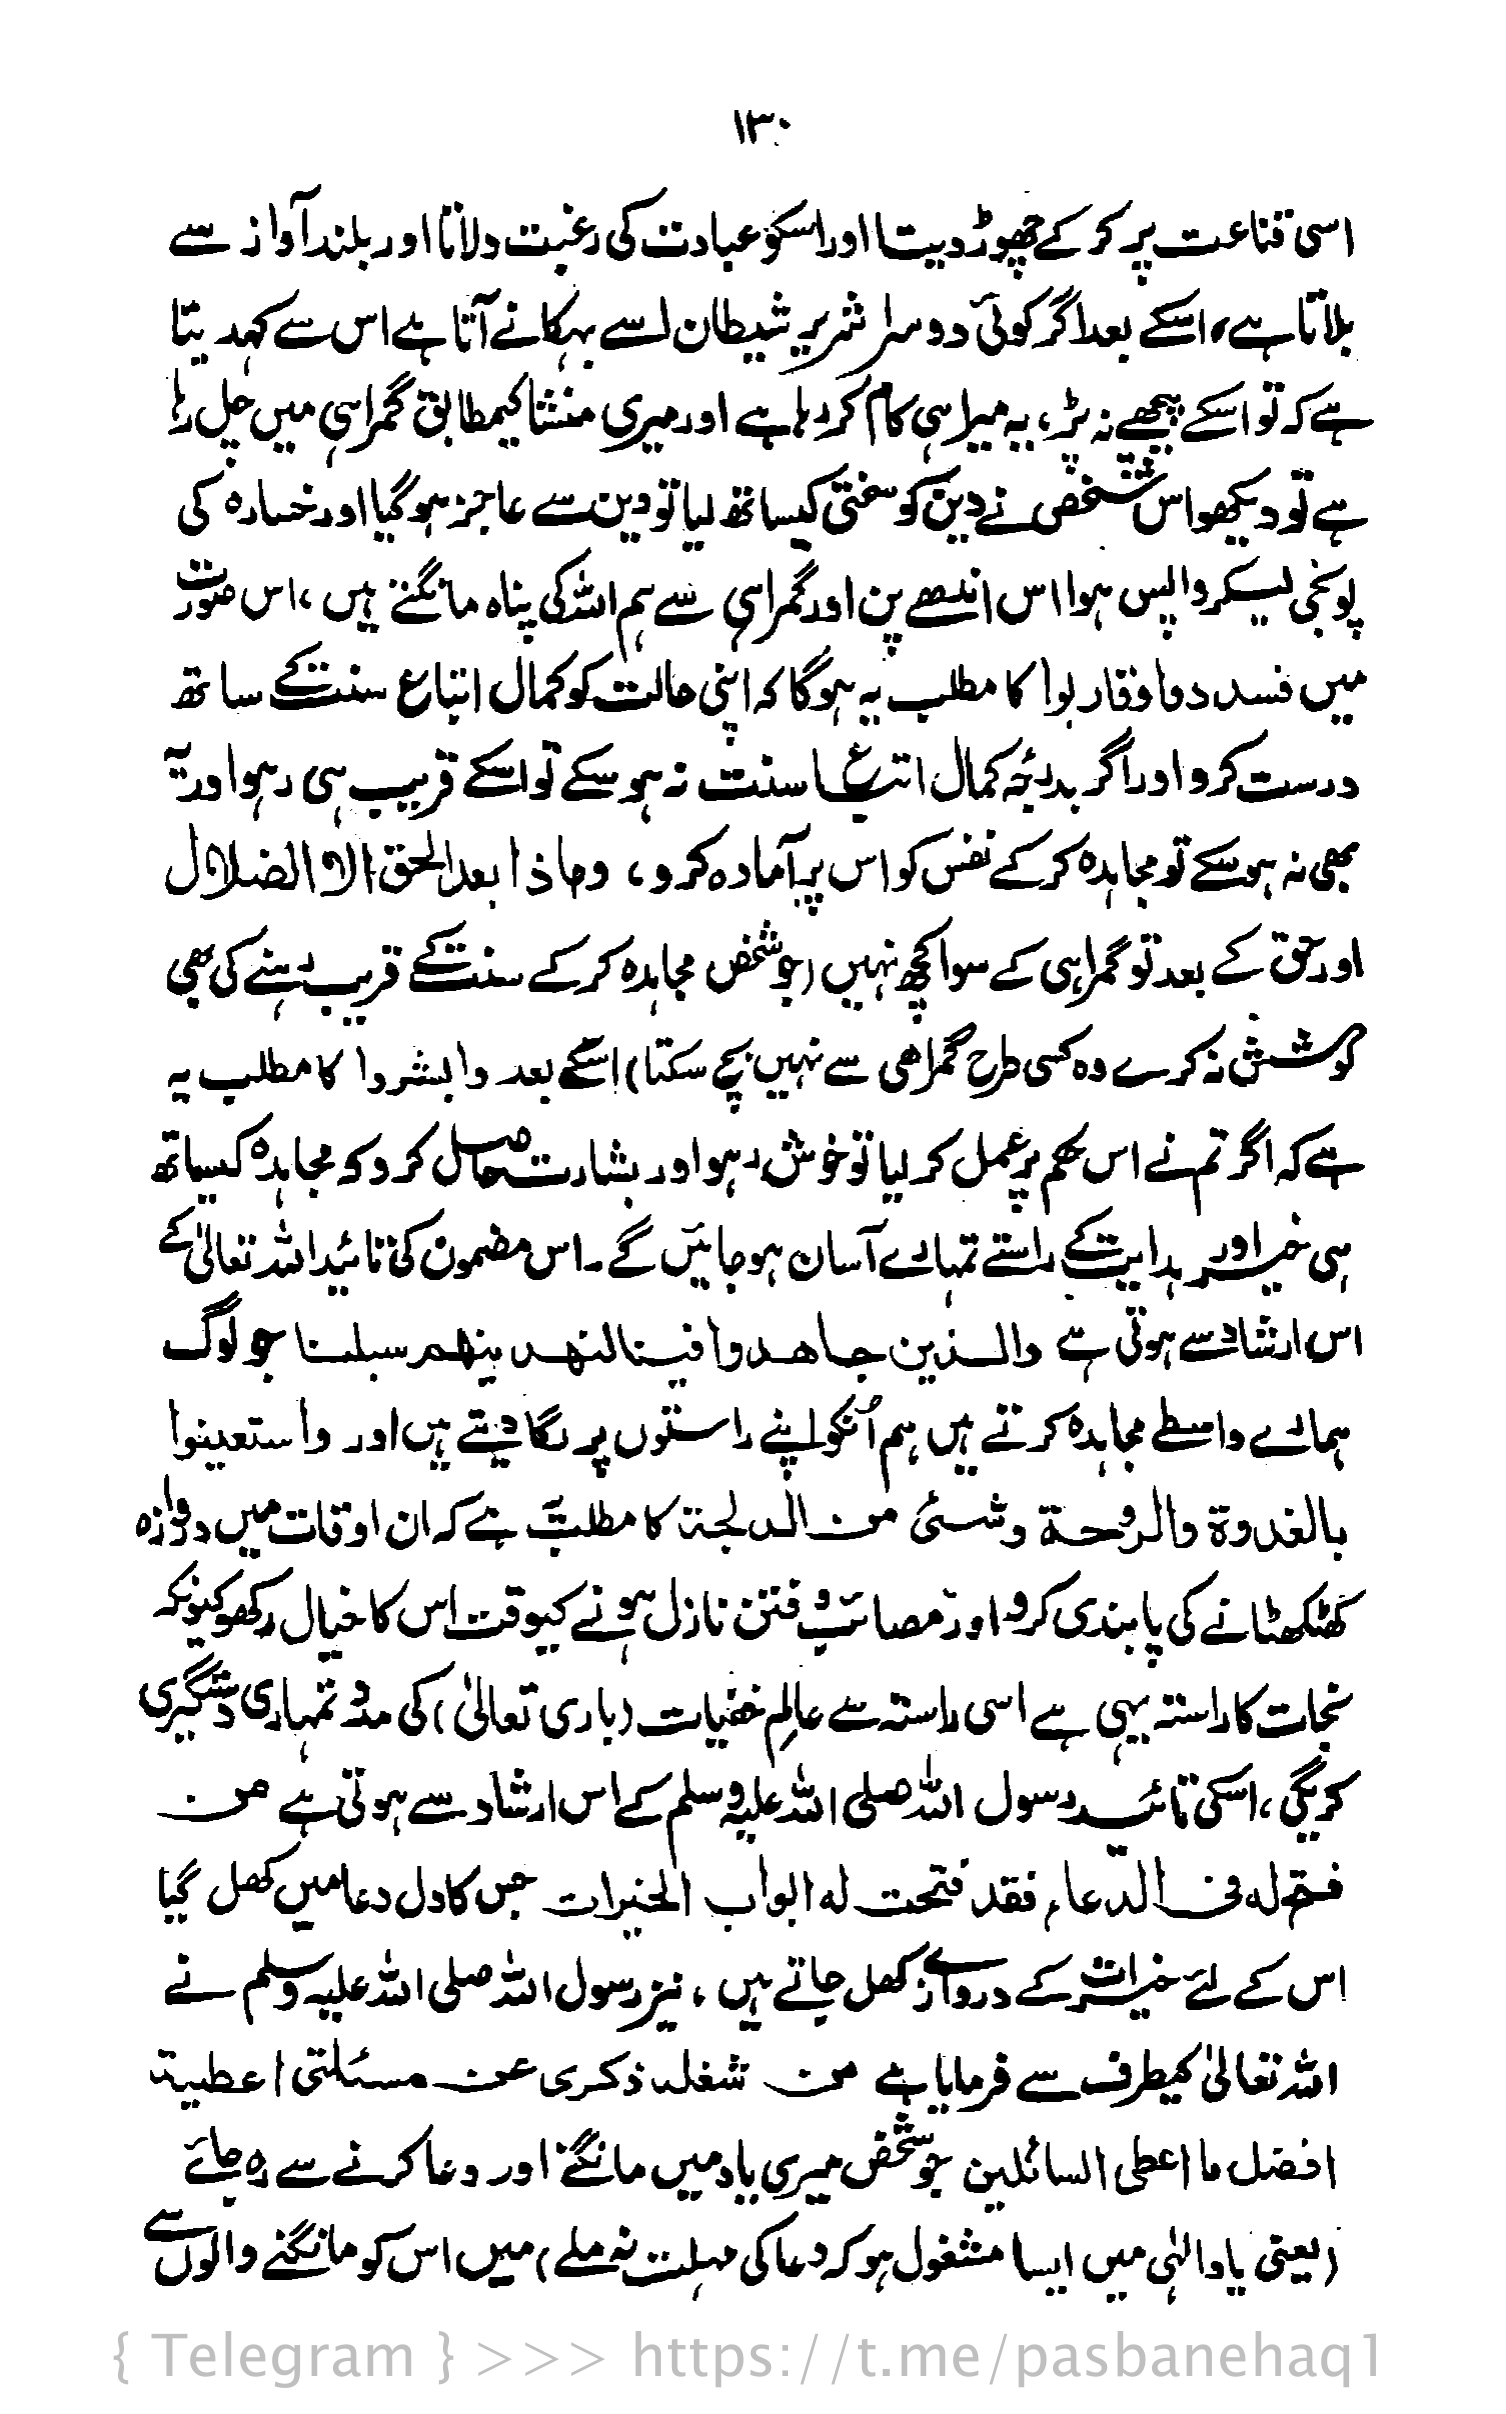 ۱۳۰
اسی قناعت پر کر کے چھوڑ دیتا اور اسکو عبادت کی رغبت دلاتا اور بلند آواز سے
بلاتا ہے، اسکے بعد اگر کوئی دوسرا شریر شیطان اسے بہکانے آتا ہے اس سے کہدیتا
ہے کہ تو اسکے پیچھے نہ پڑ، یہ میرا ہی کام کر رہا ہے اور میری منشا کیمطابق گمراہی میں چل رہا
ہے تو دیکھو اس شخص نے دین کو سختی کیساتھ لیا تو دین سے عاجز ہو گیا اور خسارہ کی
پونجی لیکر واپس ہوا اس اندھے پن اور گمراہی سے ہم اللہ کی پناہ مانگتے ہیں، اس صورت
میں فسددوا وقاربوا کا مطلب یہ ہو گا کہ اپنی حالت کو کمال اتباع سنت کے ساتھ
درست کرو اور اگر بدرجہ کمال اتباع سنت نہ ہو سکے تو اسکے قریب ہی رہو اور یہ
بھی نہ ہو سکے تو مجاہدہ کر کے نفس کو اس پر آمادہ کرو، وماذا بعد الحق الا الضلال
اور حق کے بعد تو گمراہی کے سوا کچھ نہیں (جو شخص مجاہدہ کر کے سنت کے قریب رہنے کی بھی
کوشش نہ کرے وہ کسی طرح گمراھی سے نہیں بچ سکتا) اسکے بعد وابشروا کا مطلب یہ
ہے کہ اگر تم نے اس حکم پر عمل کر لیا تو خوش رہو اور بشارت حاصل کرو کہ مجاہدہ کیساتھ
ہی خیر اور ہدایت کے راستے تمہارے آسان ہو جائیں گے۔ اس مضمون کی تائید اللہ تعالیٰ کے
اس ارشاد سے ہوتی ہے والذین جاھدوا فینا لنھدینھم سبلنا جو لوگ
ہمارے واسطے مجاہدہ کرتے ہیں ہم اُنکو اپنے راستوں پر لگا دیتے ہیں اور واستعینوا
بالغدوة والروحة وشئی من الدلجة کا مطلب یہ ہے کہ ان اوقات میں دروازہ
کھٹکھٹانے کی پابندی کرو اور مصائب و فتن نازل ہونے کیوقت اس کا خیال رکھو کیونکہ
نجات کا راستہ یہی ہے اسی راستہ سے عالم خفیات (باری تعالیٰ) کی مدد تمہاری دستگیری
کریگی، اسکی تائید رسول اللہ صلی اللہ علیہ وسلم کے اس ارشاد سے ہوتی ہے من
فتح له فی الدعاء فقد فتحت له ابواب الخیرات جس کا دل دعا میں کھل گیا
اس کے لئے خیرات کے دروازے کھل جاتے ہیں، نیز رسول اللہ صلی اللہ علیہ وسلم نے
اللہ تعالیٰ کیطرف سے فرمایا ہے من شغلہ ذکری عن مسئلتی اعطیتہ
افضل ما اعطی السائلین جو شخص میری یاد میں مانگنے اور دعا کرنے سے رہ جائے
(یعنی یاد الٰہی میں ایسا مشغول ہو کر دعا کی مہلت نہ ملے) میں اس کو مانگنے والوں سے
{ Telegram } >>> https://t.me/pasbanehaq1